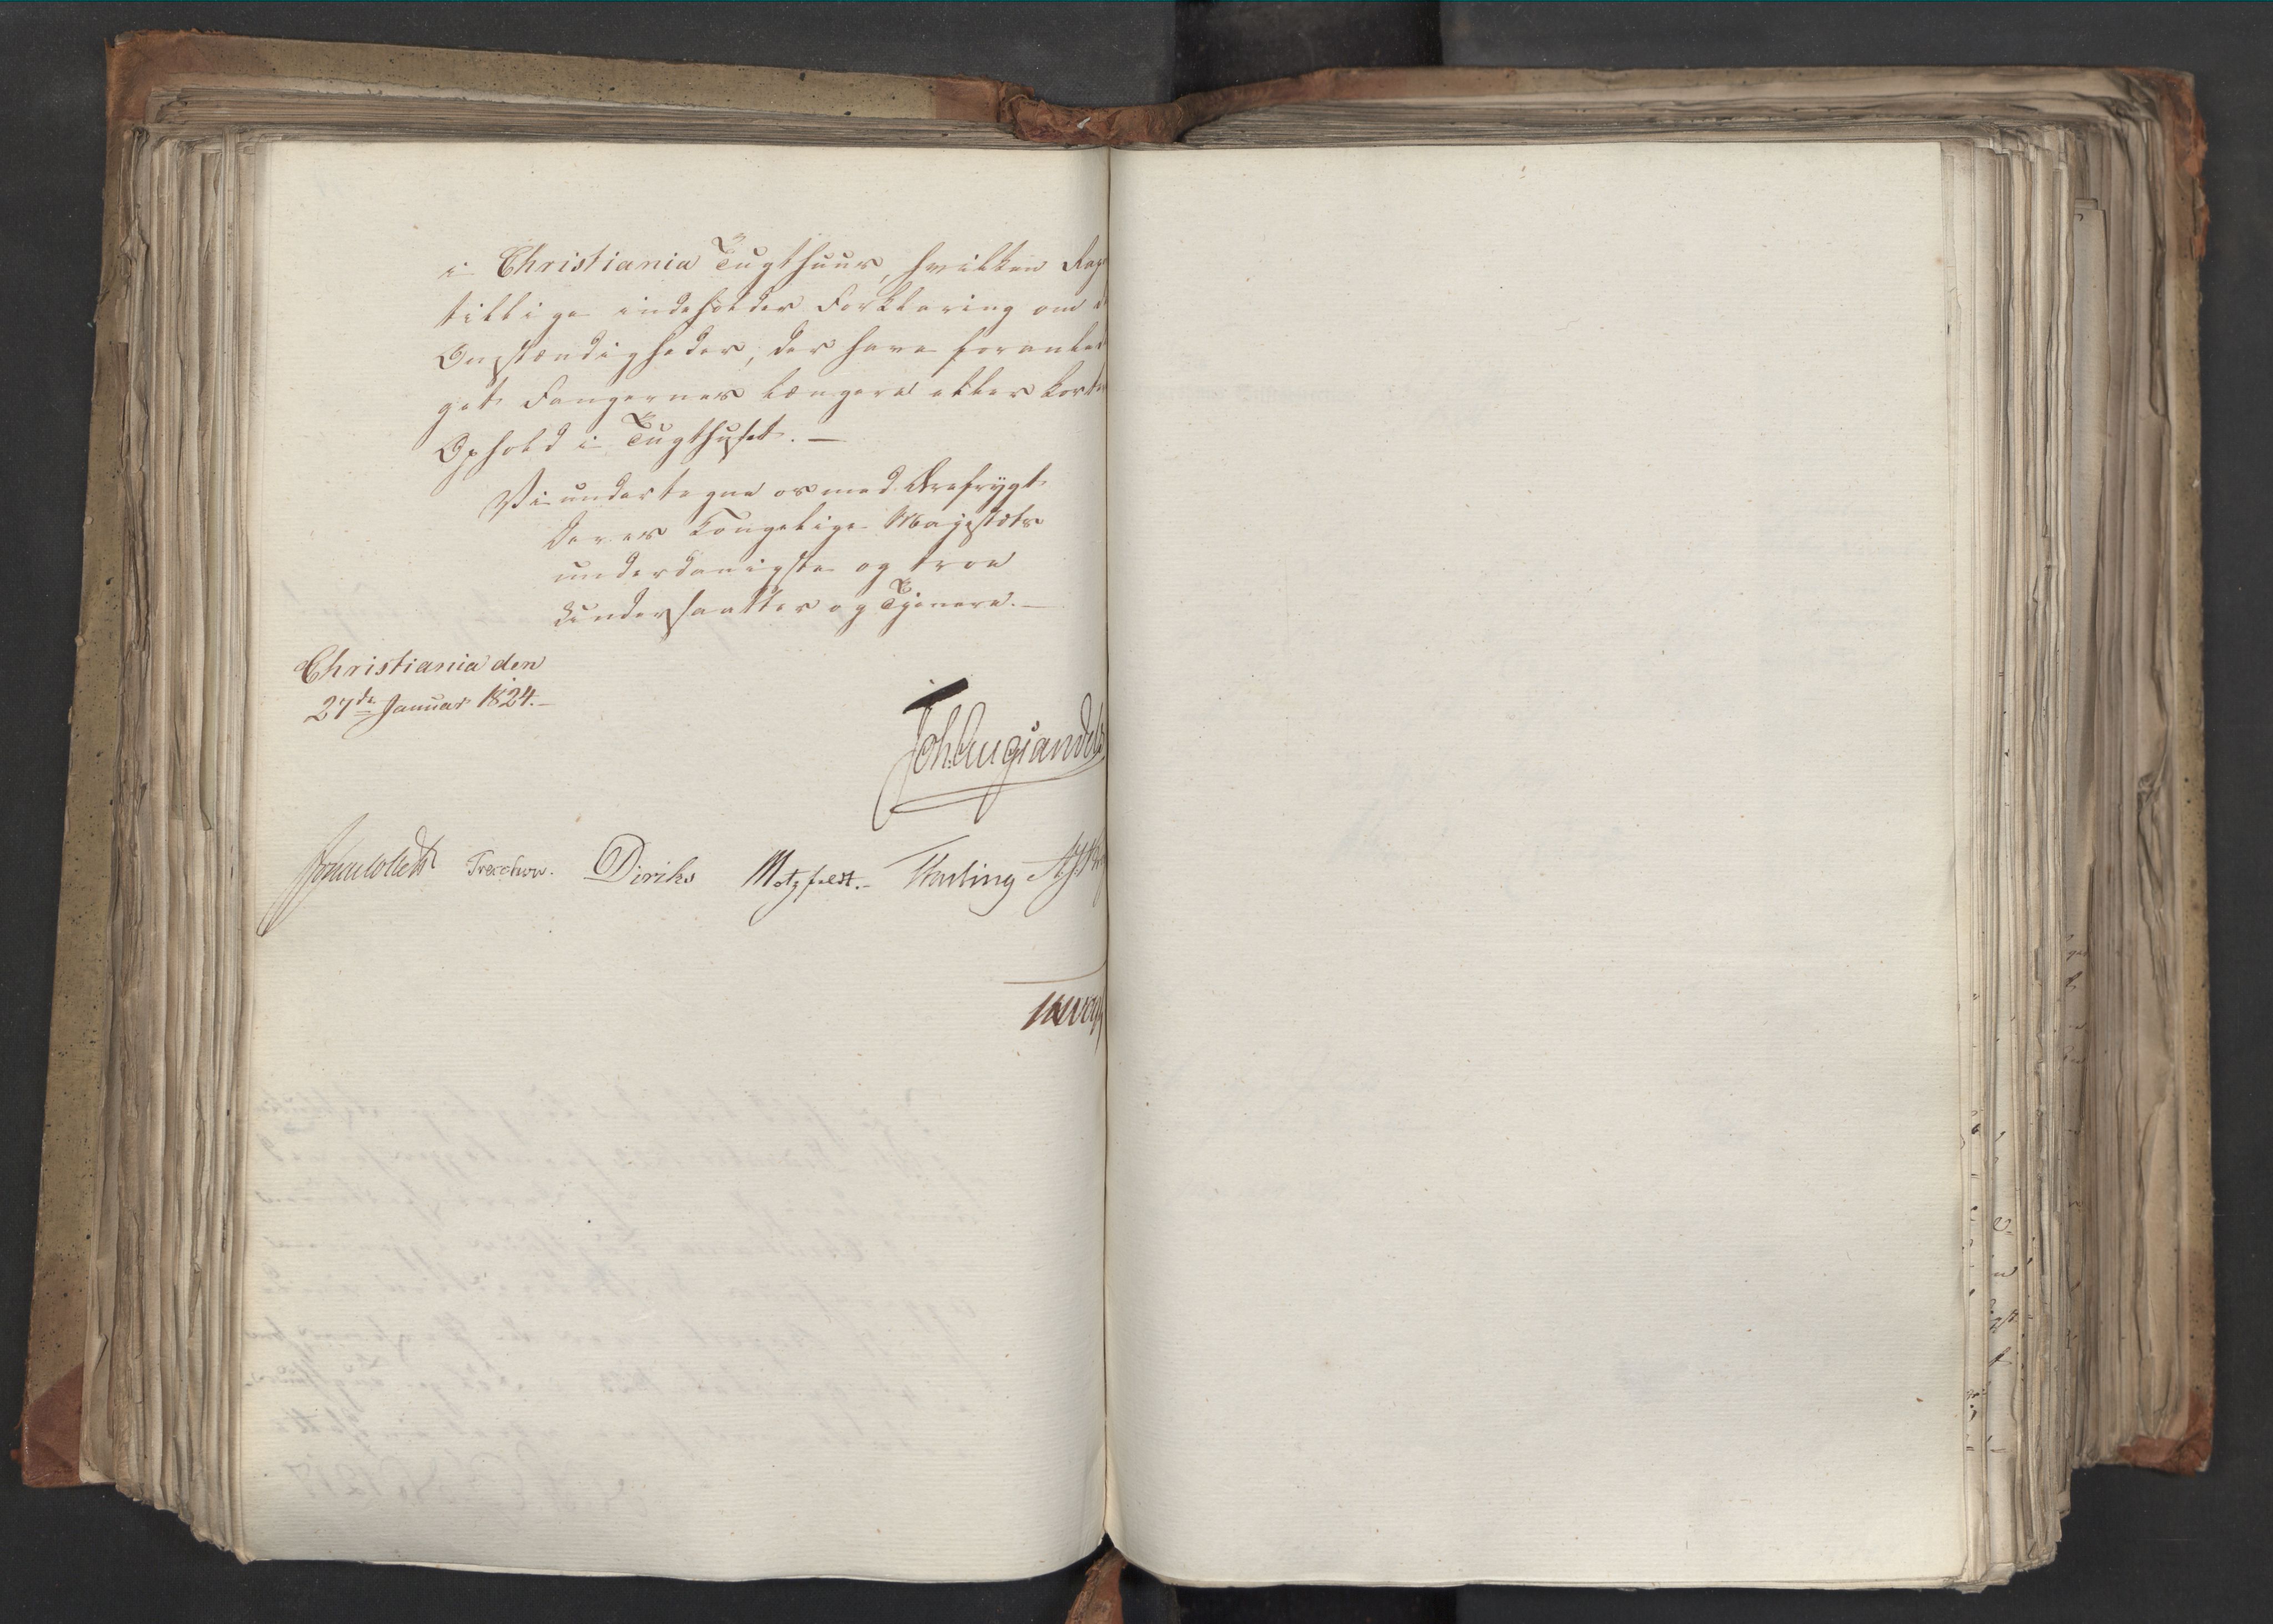 i Christiania Tugthuus, hvilken Rap
tillige indeholder Forklaring om
Omstændigheder, der have foranled
get Fangernes længere eller kort
Ophold i Tugthuset. —
Vi undertegne os med Ærefrygt
Deres Kongelige Majestæts
underdanigste og troe
Undersaatter og Tjenere. —
Christiania den
27de Januar 1824. —
Joh. Aug. Sandels
Jonas Collett Treschow. Diriks Motzfeldt. –